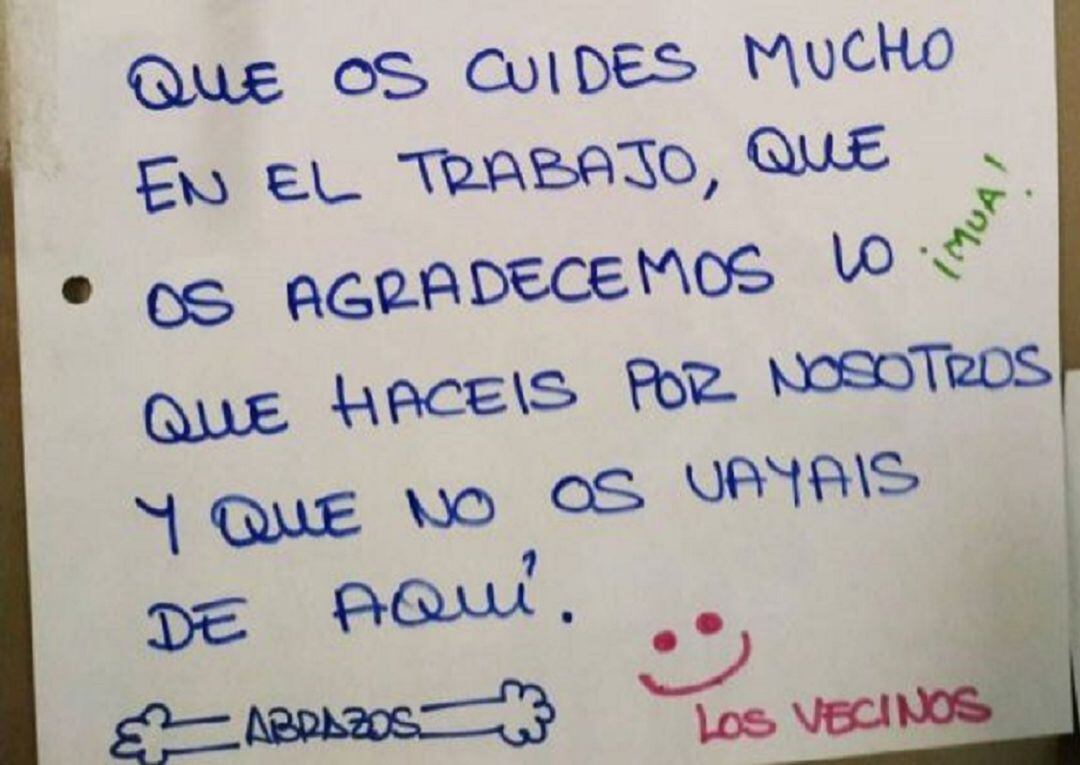 QUE OS CUIDES MUCHO
EN EL TRABAJO, QUE
OS AGRADECEMOS LO
¡MUA!
QUE HACEIS POR NOSOTROS
Y QUE NO OS VAYAIS
DE AQUÍ.
ABRAZOS
LOS VECINOS